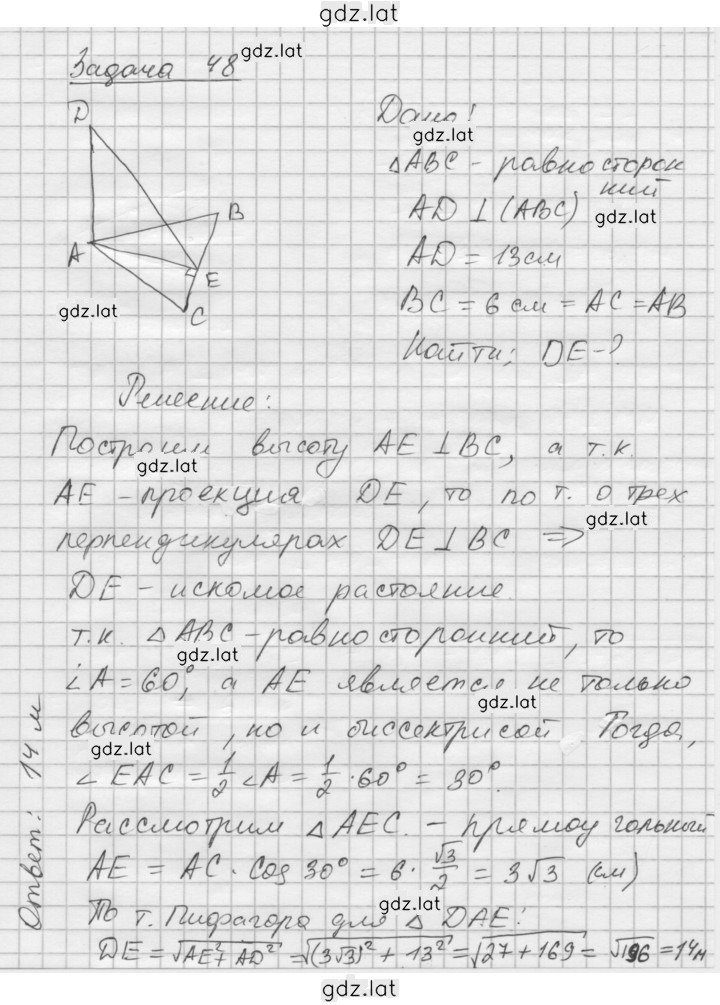 gdz.lat
gdz.lat
Задача 48
D
A
B
E
C
gdz.lat
Дано!
gdz.lat
△ABC - равносторон
ний
AD ⊥ (ABC)
gdz.lat
AD = 13 см
BC = 6 см = AC = AB
Найти: DE - ?
Решение:
Построим высоту AE ⊥ BC, а т.к.
gdz.lat
AE - проекция DE, то по т. о трех
gdz.lat
перпендикулярах DE ⊥ BC ⇒
DE - искомое растояние.
т.к. △ABC - равносторонний, то
gdz.lat
∠A = 60°, а AE является не только
gdz.lat
высотой, но и биссектрисой. Тогда,
gdz.lat
∠EAC = 1/2 ∠A = 1/2 · 60° = 30°.
Рассмотрим △AEC. - прямоугольный
AE = AC · cos 30° = 6 · √3/2 = 3√3 (см)
gdz.lat
По т. Пифагора для △DAE:
DE = √(AE² + AD²) = √((3√3)² + 13²) = √(27 + 169) = √196 = 14 м
Ответ: 14 м
gdz.lat